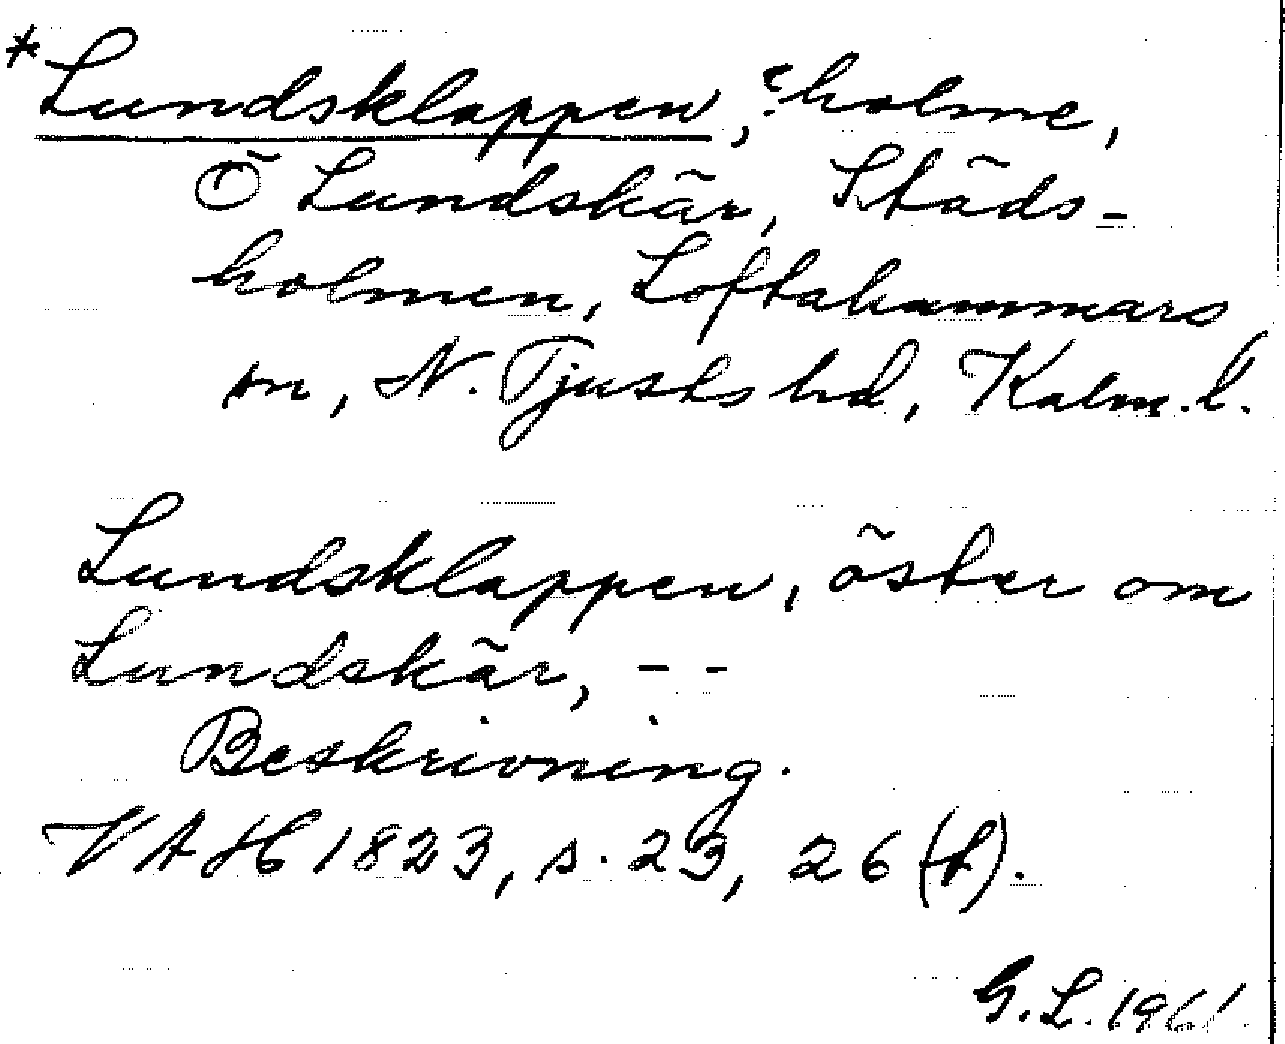 *Lundsklappen, ?holme,
Ö Lundskär, Städs-
holmen, Loftahammars
sn, N. Tjusts hd, Kalm. l.
Lundsklappen, öster om
Lundskär, - -
Beskrivning.
VAH 1823, s. 23, 26 (k).
G.L. 1961